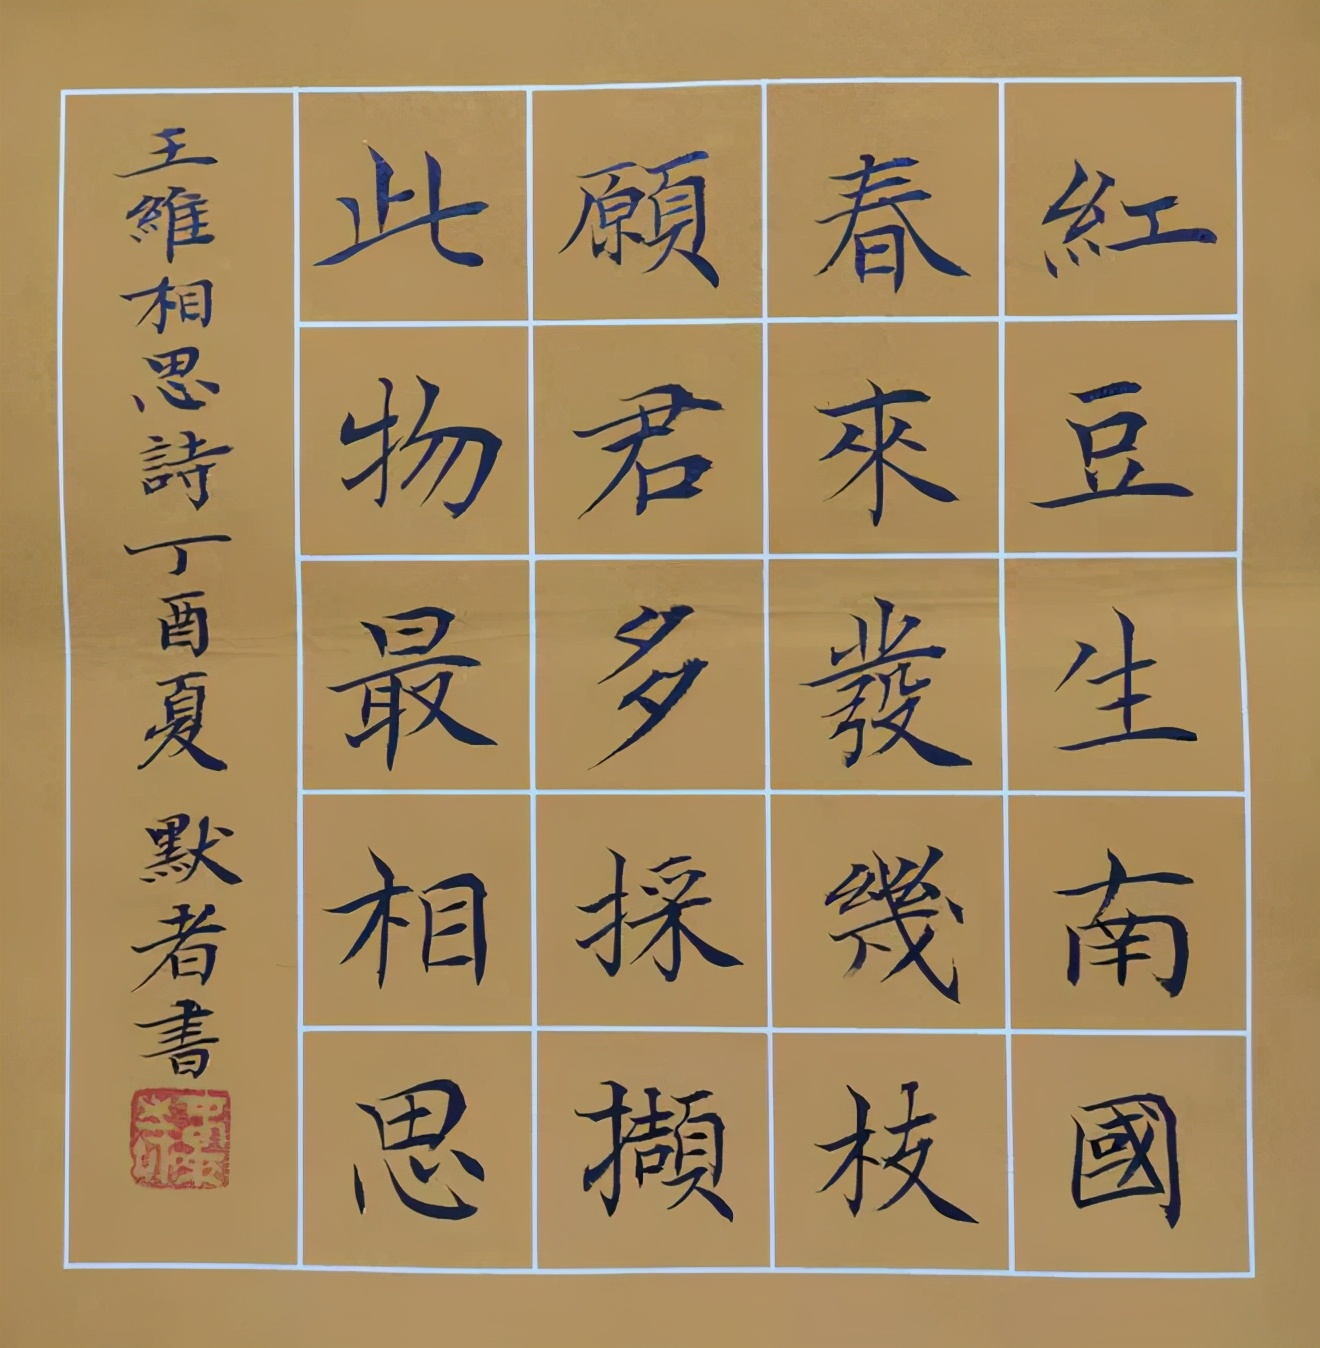 紅豆生南國
春來發幾枝
願君多採擷
此物最相思
王維相思詩丁酉夏 默者書